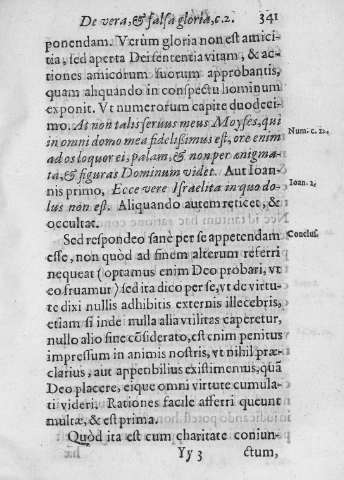 De vera, & falsa gloria, c. 2. 341
ponendam. Verum gloria non est amici-
tia, sed aperta Dei sententia vitam, & ac-
tiones amicorum suorum approbantis,
quam aliquando in conspectu hominum
exponit. Vt numerorum capite duodeci-
mo. At non talis seruus meus Moyses, qui
in omni domo mea fidelissimus est, ore enim
Num. c. 12.
ad os loquor ei, palam, & non per ænigma-
ta, & figuras Dominum videt. Aut Ioan-
nis primo, Ecce vere Israelita in quo do-
Ioan. 2.
lus non est. Aliquando autem reticet, &
occultat.
Sed respondeo sanè per se appetendam
Conclus.
esse, non quòd ad finem alterum referri
nequeat (optamus enim Deo probari, vt
eo fruamur) sed ita dico per se, vt de virtu-
te dixi nullis adhibitis externis illecebris,
etiam si inde nulla alia vtilitas caperetur,
nullo alio fine cõsiderato, est enim penitus
impressum in animis nostris, vt nihil præ-
clarius, aut appetibilius existimemus, quã
Deo placere, eique omni virtute cumula-
ti videri. Rationes facile afferri queunt
multæ, & est prima.
Quòd ita est cum charitate coniun-
Yy 3 ctum,